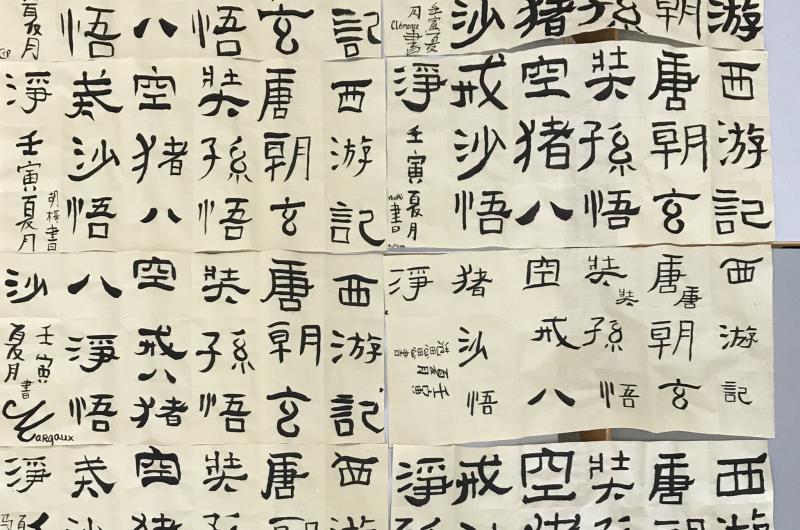 記
玄
悟
八
悟
夏月
游
朝
孫
猪
沙
壬寅夏月
Clémence 書
西游記
唐朝玄
奘孫悟
空猪八
戒沙悟
淨
壬寅夏月
西游記
唐朝玄
奘孫悟
空猪八
戒沙悟
淨
壬寅夏月
書
西游記
唐朝玄
奘孫悟
空戒八猪
八淨悟
沙
壬寅
夏月
書
Margaux
西游記
唐唐朝玄
奘奘孫悟
空戒八
猪沙悟
淨
壬寅
夏月
西游
唐朝
奘孫
空猪
戒沙
淨
西游
唐朝
奘
空
戒
淨